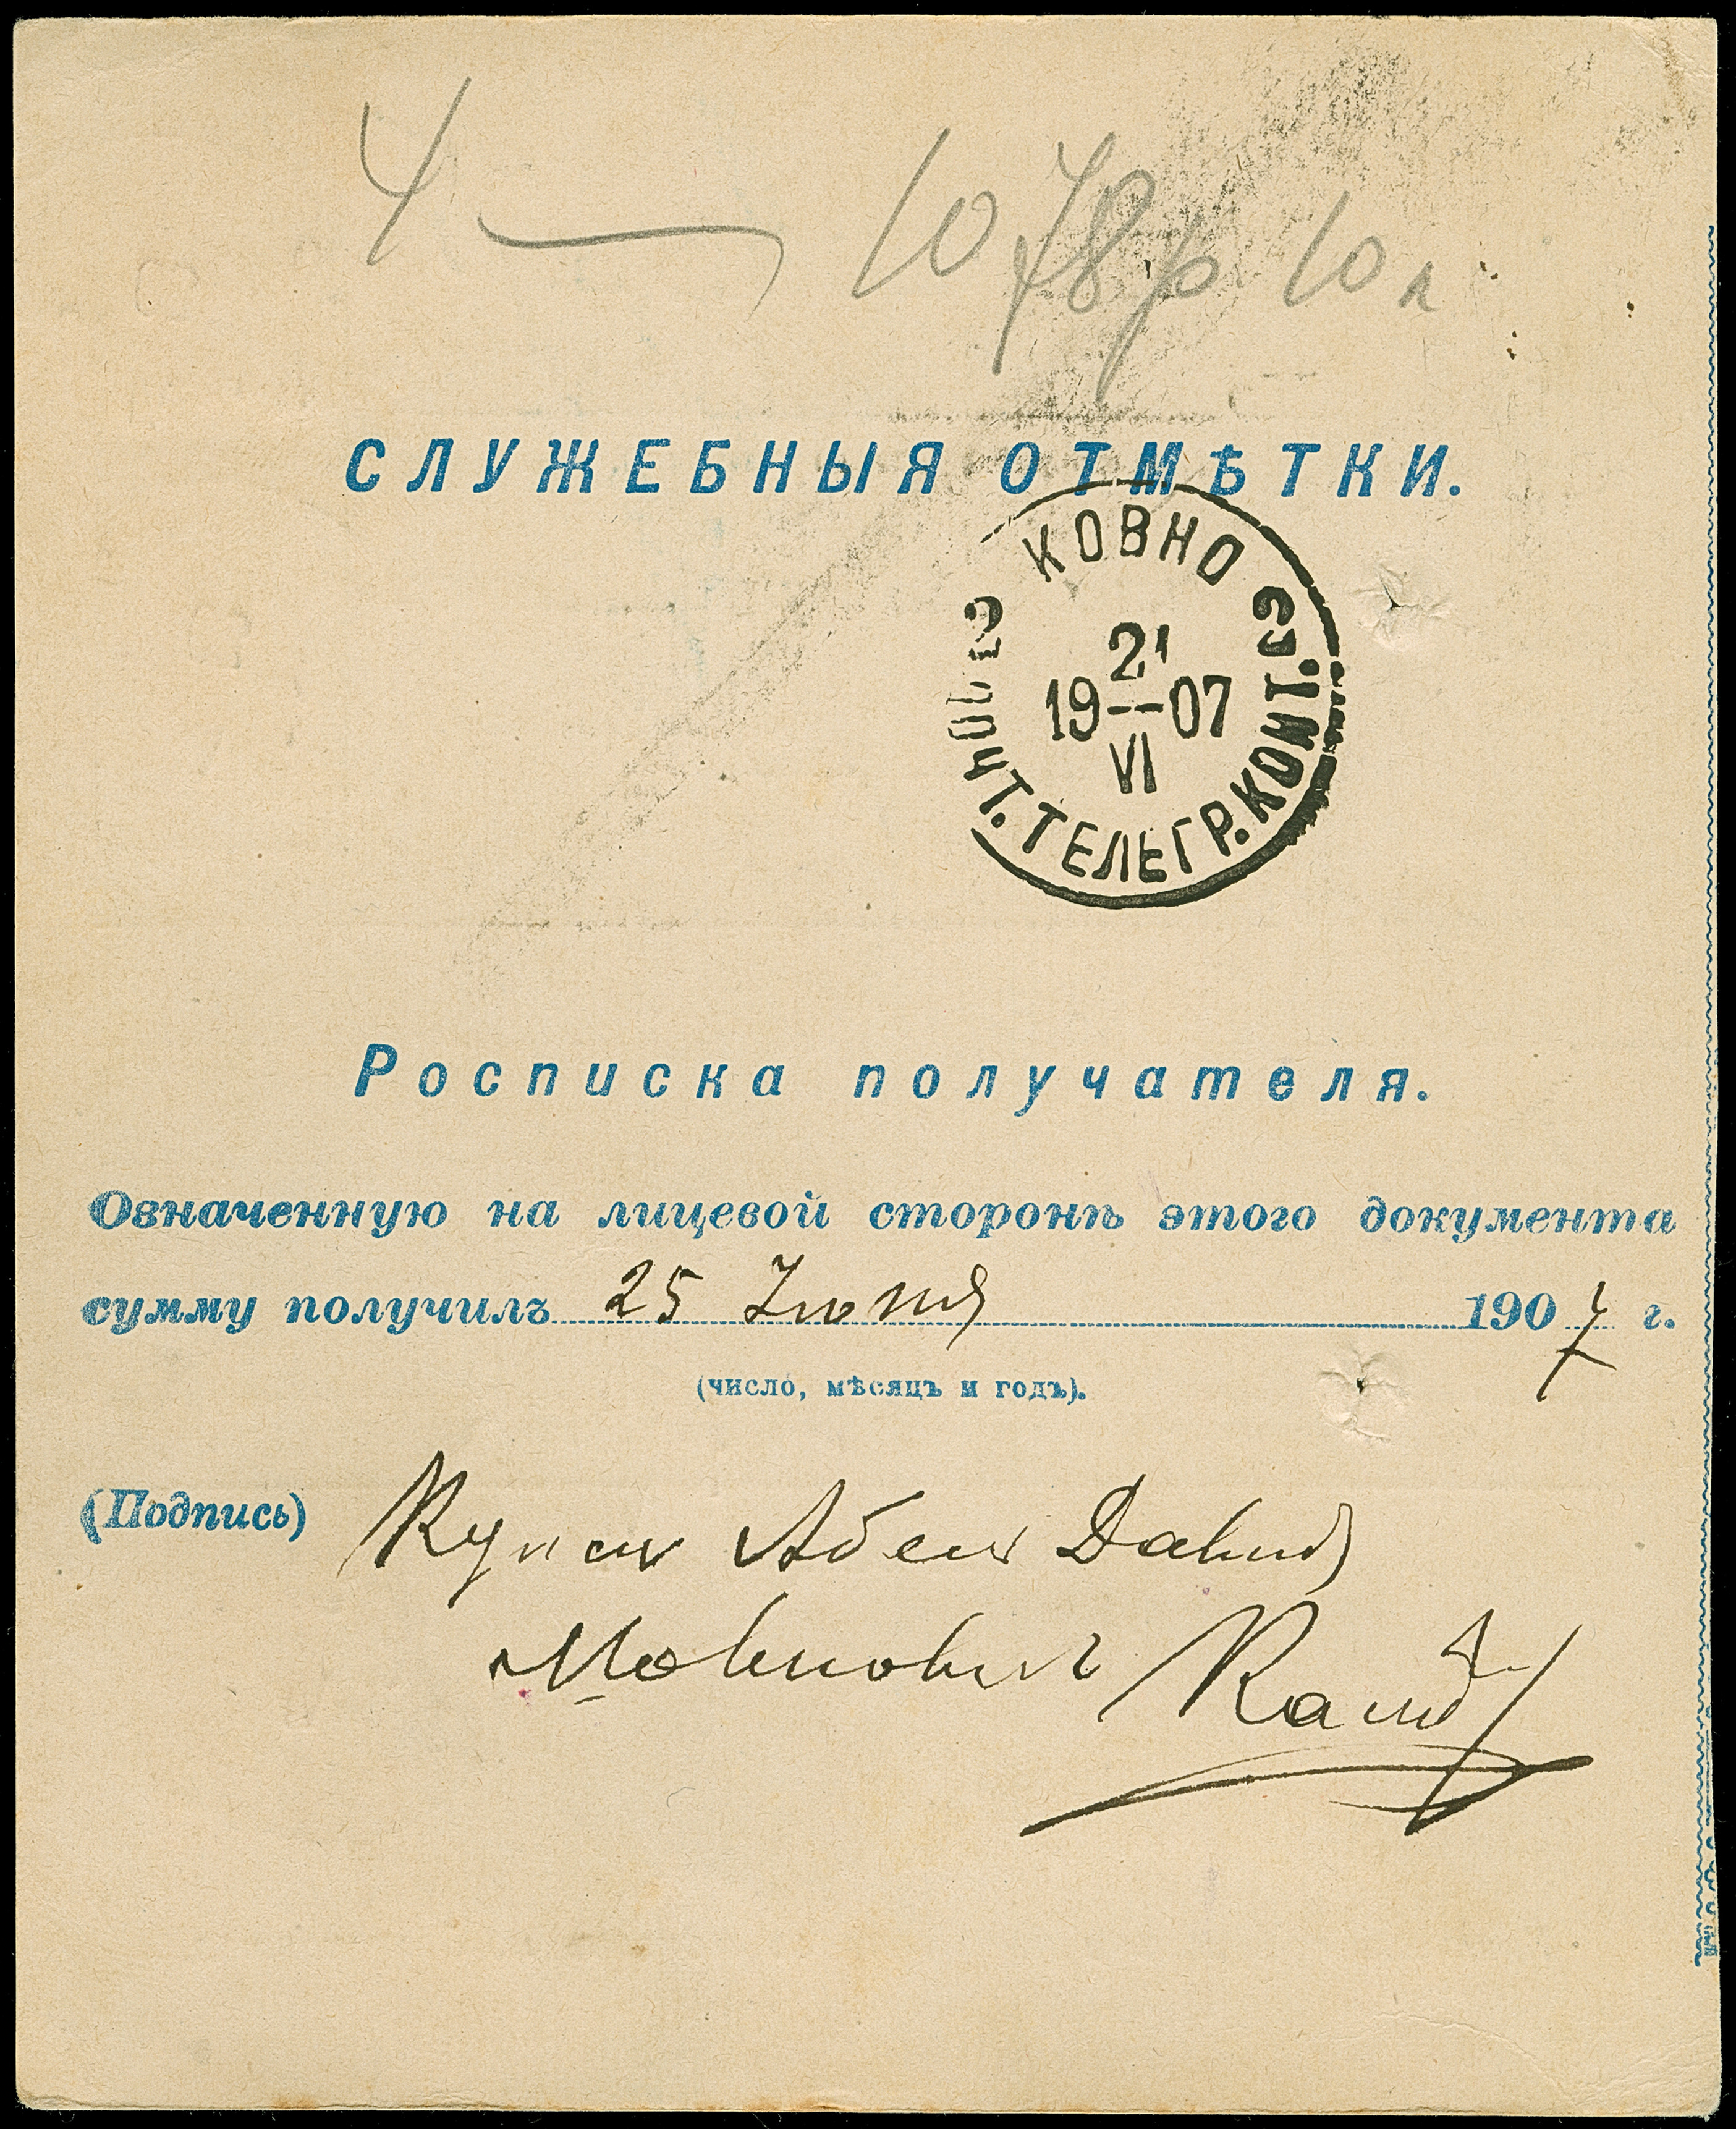 4 — 1078 р 10 к
СЛУЖЕБНЫЯ ОТМѢТКИ.
КОВНО
21
19--07
VI
ПОЧТ. ТЕЛЕГР. КОНТ.
Росписка получателя.
Означенную на лицевой сторонѣ этого документа
сумму получилъ 25 Іюня 1907 г.
(число, мѣсяцъ и годъ).
(Подпись) Абель Давид